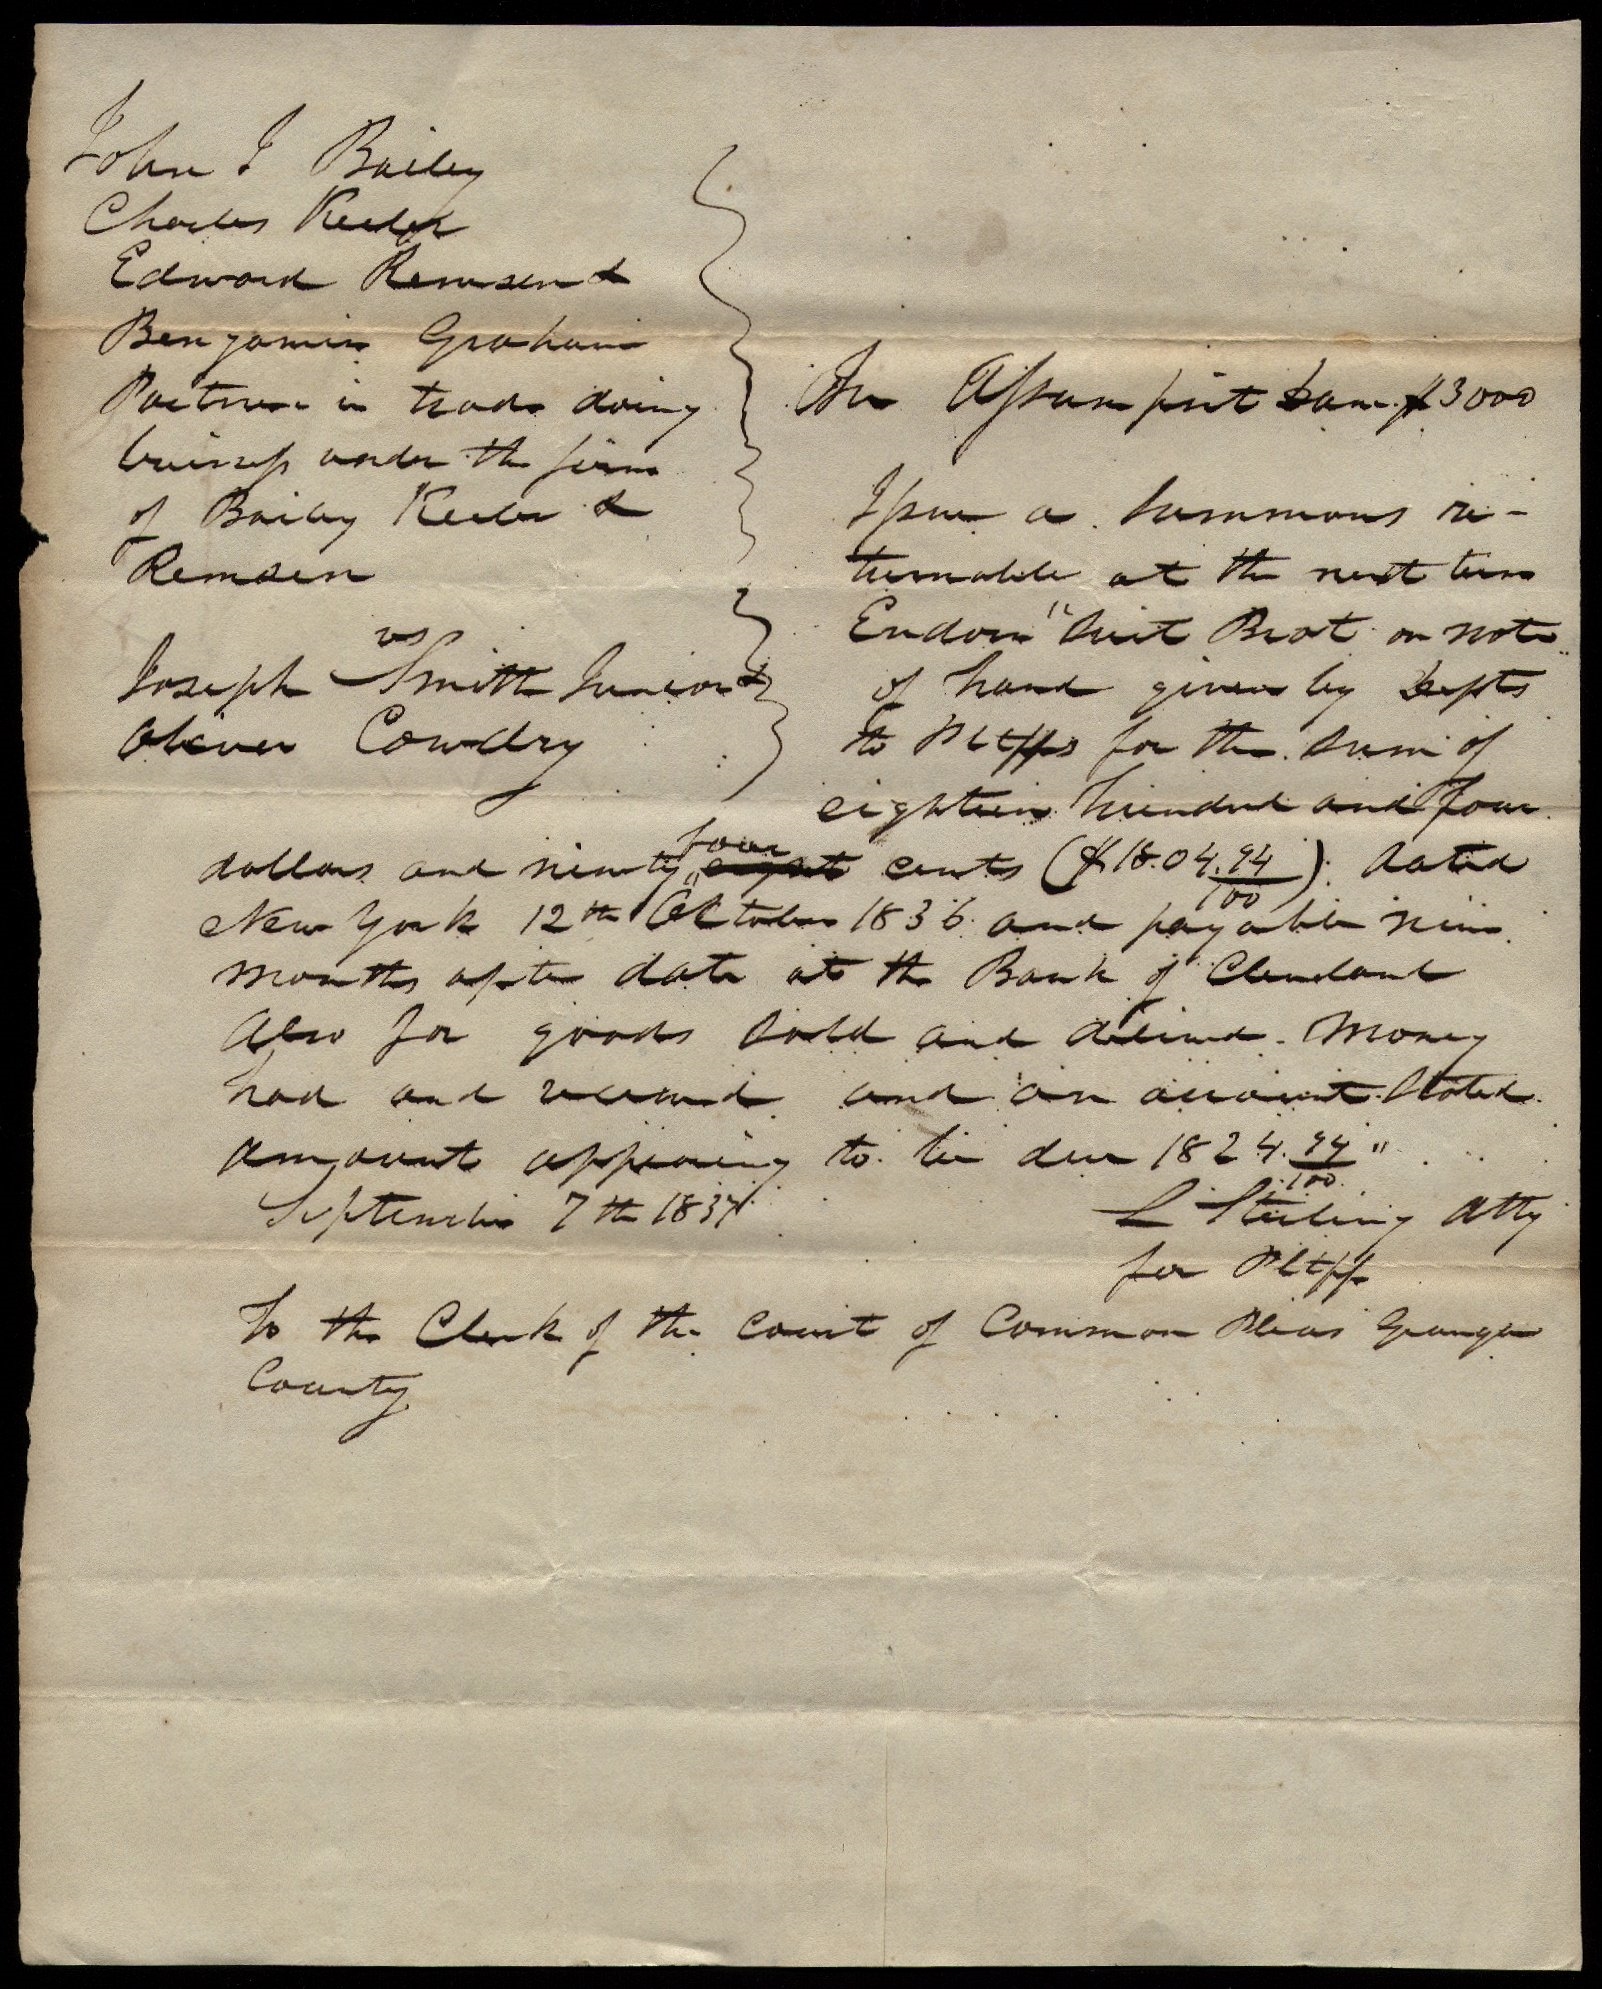 John J Bailey
Charles Keeler
Edward Remsen &
Benjamin Graham
Partners in trade doing
buisness under the firm
of Bailey Keeler &
Remsen
vs
Joseph Smith Junior &
Oliver Cowdry
In Assumpsit Dam. $3000
Issue a Summons re-
turnable at the next term
Endorse "Suit Brot on note
of hand given by Defts
to Pltffs for the Sum of
eighteen hundred and four
dollars and ninety four eight cents ($18.04.94/100) dated
New York 12th October 1836 and payable nine
months after date at the Bank of Cleveland
Also for goods Sold and delivered - Money
had and received and an account Stated
Amount appearing to be due 1824.94/100"
September 7th 1837
L Sterling Atty
for Pltff
To the Clerk of the Court of Common Pleas Geauga
County